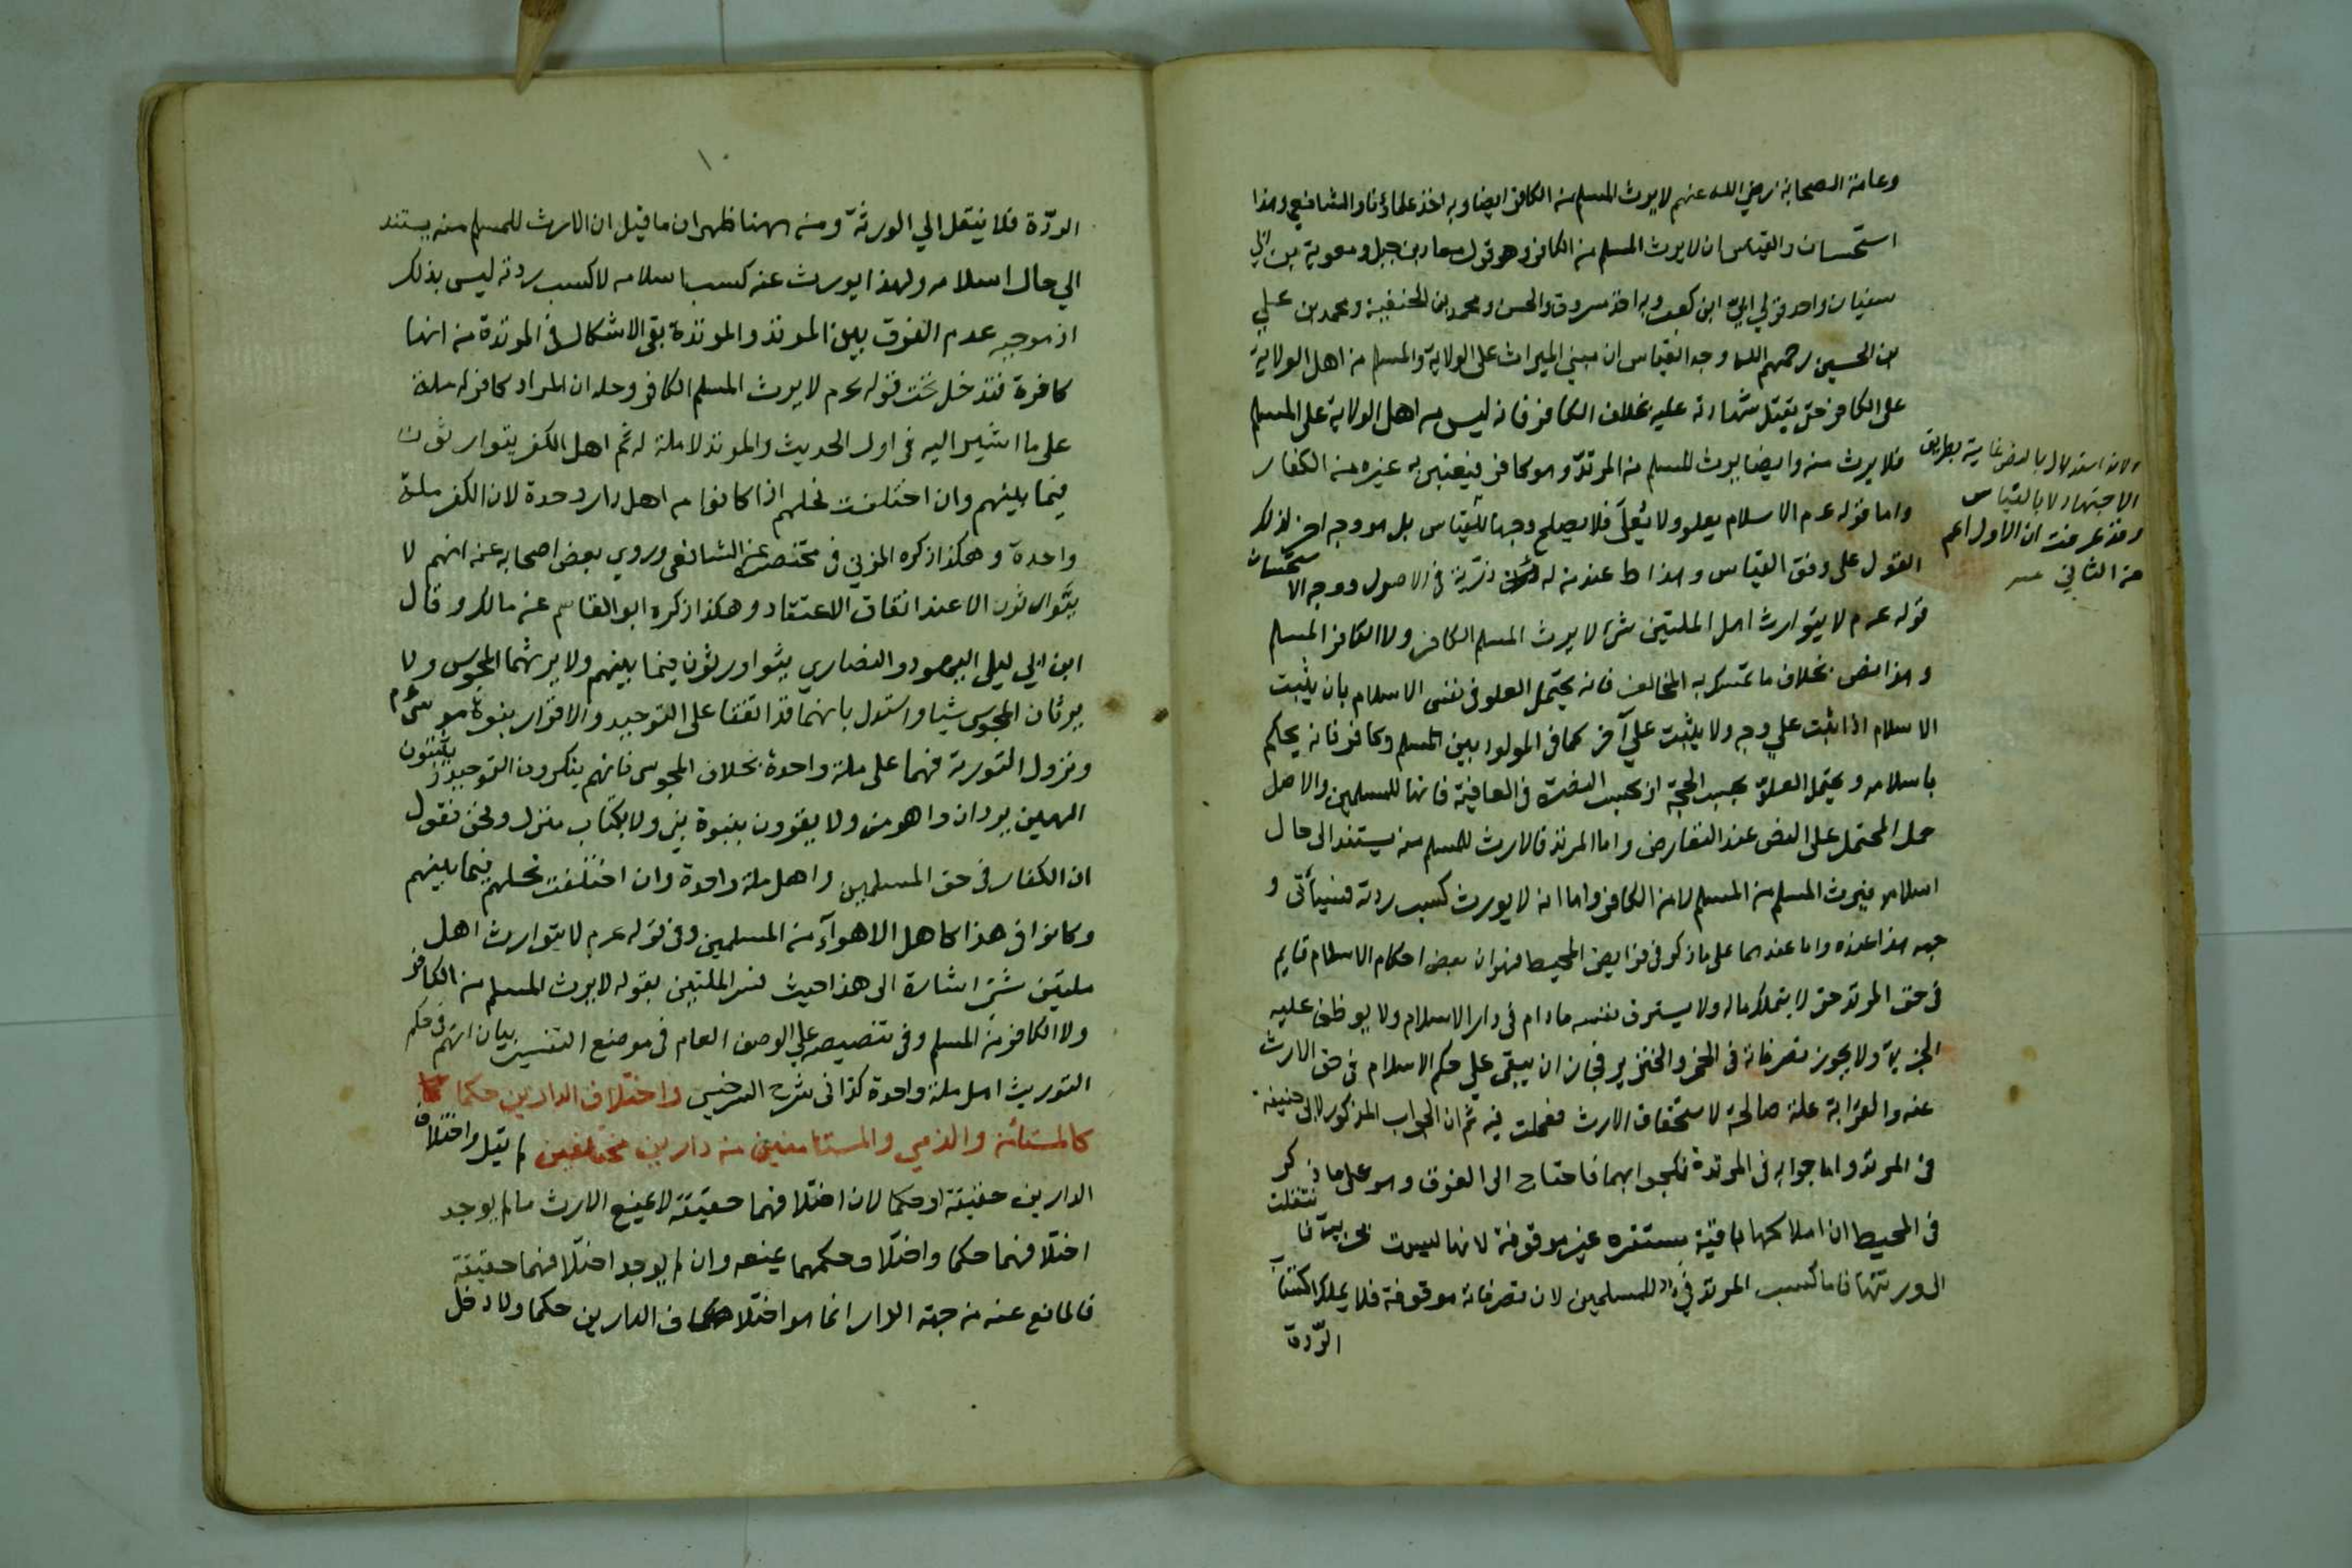 وعامة الصحابة رضي الله عنهم لا يورث المسلم من الكافر ايضا وبه اخذ علماؤنا والشافعي وهذا
استحسان والقياس ان لا يورث المسلم من الكافر وهو قول معاد بن جبل ومعوية بن ابي
سفيان واحد قولي ابي ابن كعب وبه اخذ مسروق والحسن ومحمد بن الحنفية ومحمد بن علي
بن الحسين رحمهم الله وجه القياس ان مبني الميراث على الولاية والمسلم من اهل الولاية
على الكافر حتى يقبل شهادته عليه بخلاف الكافر فانه ليس من اهل الولاية على المسلم
فلا يرث منه وايضا يرث المسلم من المرتد وهو كافر فيعتبر به غيره من الكفار
واما قوله عم الاسلام يعلو ولا يعلى فلا يصلح وجها للقياس بل هو وجه اخر لذلك
القول على وفق القياس وهذا ط عند من له دربة في الاصول ووجه الاستحسان
قوله عم لا يتوارث اهل الملتين شئ لا يرث المسلم الكافر ولا الكافر المسلم
وهذا نص بخلاف ما تمسك به المخالف فانه يحتمل العلو في نفس الاسلام بان يثبت
الاسلام اذا ثبت على وجه ولا يثبت على آخر كما في المولود بين المسلم وكافر فانه يحكم
باسلامه ويحتمل العلو بحسب الحجة او بحسب النصرة في العاقبة فانها للمسلمين والاصل
حمل المحتمل على النص عند التعارض واما المرتد فالارث للمسلم منه يستند الى حال
اسلامه فيرث المسلم من المسلم لا من الكافر واما انه لا يورث كسب ردته فسيأتى و
جهه هذا عنده واما عندهما على ما ذكر في فرايض المحيط فهو ان بعض احكام الاسلام قايم
في حق المرتد حتى لا يتملك ماله ولا يسترق نفسه مادام في دار الاسلام ولا يوظف عليه
الجزية ولا يجوز تصرفاته في الخمر والخنزير فجاز ان يبقى على حكم الاسلام في حق الارث
عنه والقرابة علة صالحة لاستحقاق الارث فعملت فيه ثم ان الجواب المذكور لابي حنيفة
في المرتد واما جوابه في المرتدة فكجوابهما فاحتاج الى الفرق وهو على ما ذكر
في المحيط ان املاكها باقية مستقرة غير موقوفة لانها ليست بحربية فانتقلت
الى ورثتها فاما كسب المرتد فئ للمسلمين لان تصرفاته موقوفة فلا يملك اكتساب
الردة
ولانه استدلال بطريق
الاجتهاد لا بالقياس
وقد عرفت ان الاول اعم
من الثاني منه
١٠
الردّة فلا ينتقل الي الورثة ومن ههنا ظهر ان ما قيل ان الارث للمسلم منه يستند
الي حال اسلامه ولهذا يورث عنه كسب اسلامه لا كسب ردته ليس بذلك
اذ موجبه عدم الفرق بين المرتد والمرتدة بقى الاشكال في المرتدة من انها
كافرة فتدخل تحت قوله عم لا يرث المسلم الكافر وحله ان المراد كافر له ملة
على ما اشير اليه في اول الحديث والمرتد لا ملة له ثم اهل الكفر يتوارثون
فيما بينهم وان اختلفت نحلهم اذا كانوا من اهل دار وحدة لان الكفر ملة
واحدة وهكذا ذكره المزني في مختصره عن الشافعى وروي بعض اصحابه عنه انهم لا
يتوارثون الا عند اتفاق الاعتقاد وهكذا ذكره ابو القاسم عن مالك وقال
ابن ابي ليلى اليهود والنصاري يتوارثون فيما بينهم ولا يرثهما المجوس ولا
يرثان المجوس شيا واستدل بانهما قد اتفقا على التوحيد والاقرار بنبوة موسى عم
ونزول التورية فهما على ملة واحدة بخلاف المجوس فانهم ينكرون التوحيد ويثبتون
الهين يزدان واهرمن ولا يقرون بنبوة نبي ولا بكتاب منزل ونحن نقول
ان الكفار في حق المسلمين اهل ملة واحدة وان اختلفت نحلهم فيما بينهم
وكانوا في هذا كاهل الاهوآء من المسلمين وفى قوله عم لا يتوارث اهل
ملتين شئ اشارة الى هذا حيث فسر الملتين بقوله لا يرث المسلم من الكافر
ولا الكافر من المسلم وفى تنصيصه على الوصف العام في موضع التفسير بيان انهم في حكم
التوريث اهل ملة واحدة كذا في شرح السرخسي واختلاف الدارين حكما
كالمستأمن والذمي والمستامنين من دارين مختلفين لم يقل واختلاف
الدارين حقيقة او حكما لان اختلافهما حقيقة لا يمنع الارث ما لم يوجد
اختلافهما حكما واختلاف حكمهما يمنعه وان لم يوجد اختلافهما حقيقة
فالمانع عنه من جهة الدار انما هو اختلاف الدارين حكما ولا دخل